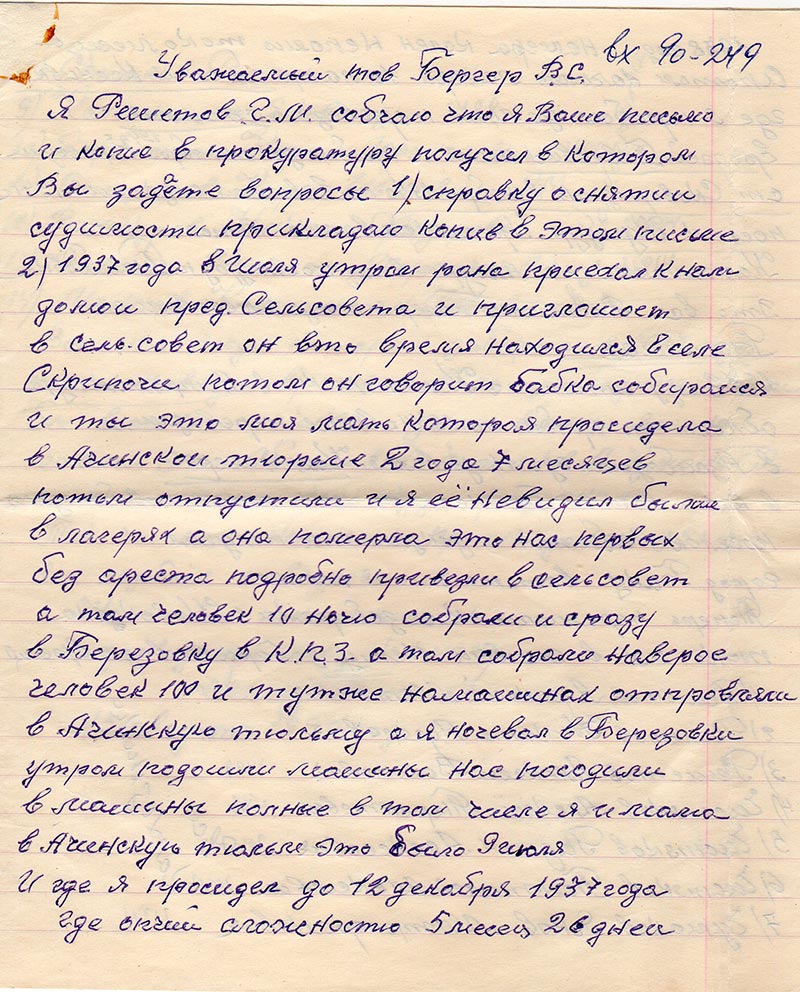 вх 90-249
Уважаемый тов Бергер В.С.
Я Решетов Г.М. собчаю что я Ваше письмо
и копие в прокуратуру получил в котором
Вы задаёте вопросы 1) справку о снятии
судимости прикладаю копив в этом письме
2) 1937 года 8 Июля утром рано приехал к нам
домои пред. Сельсовета и приглошоет
в сель.совет он вто время находился в селе
Скрипочи потом он говорит бабка собираися
и ты это моя мать которая просидела
в Ачинскои тюрьме 2 года 7 месяцев
потом отпустили и я её невидил был
в лагерях а она померла это нас первых
без ареста подробно привезли в сельсовет
а там человек 10 ночю собрали и сразу
в Березовку в К.П.З. а там собрали наверое
человек 100 и тутже намашинах отпровляли
в Ачинскую тюльму а я ночевал в Березовки
утром подошли машины нас посодили
в машины полные в том числе я и мама
в Ачинскую тюльм это было 9 июля
И где я просидел до 12 декабря 1937 года
где сложностю 5 месец 26 днеи